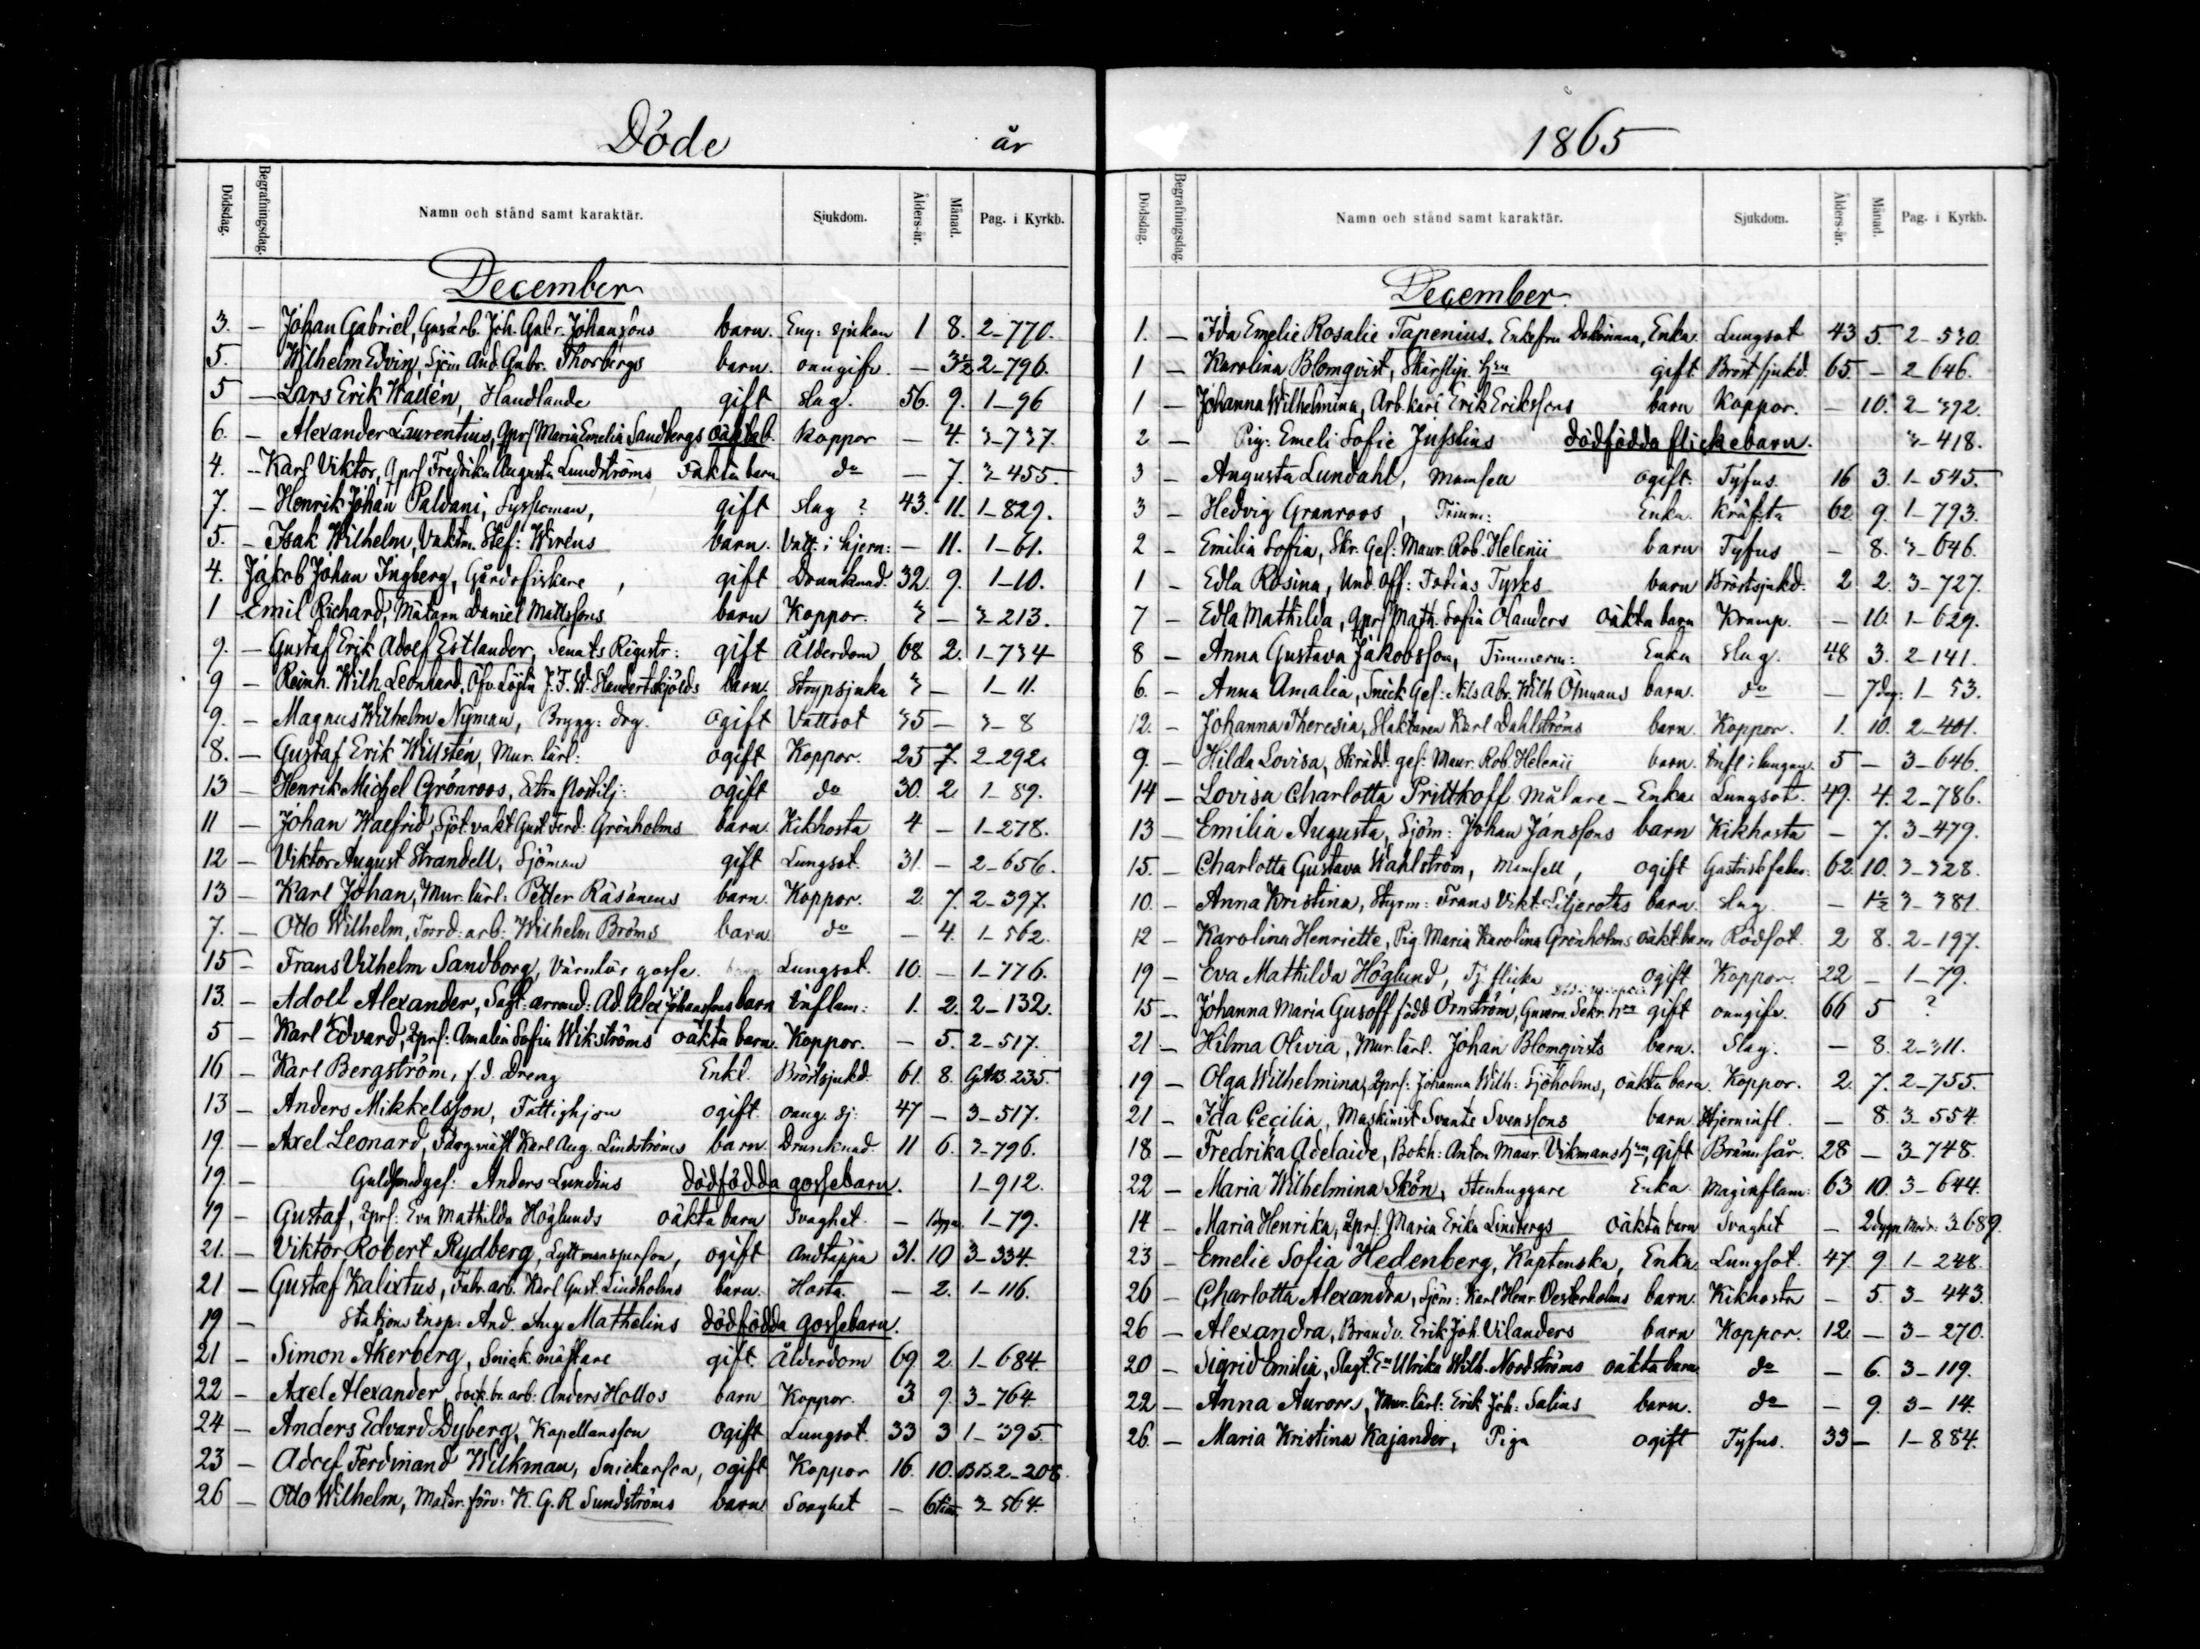 Döde år
Dödsdag. Begrafningsdag. Namn och stånd samt karaktär. Sjukdom. Ålders-år. Månad. Pag. i Kyrkb.
December
3. — Johan Gabriel, Gasarb. Joh. Gabr. Johanssons barn. Eng: sjukan 1 8. 2-770.
5. Wilhelm Edvin, Sjöm And. Gabr. Thorbergs barn. onngifv. — 3½ 2-796.
5 — Lars Erik Wallén, Handlande gift slag. 56. 9. 1-96
6. — Alexander Laurentius, Qprs Maria Emelia Sandbergs oäkta b. Koppor — 4. 3-737.
4. — Karl Viktor, Qprs Fredrika Augusta Lundströms oäkta barn do — 7. 3-455.
7. — Henrik Johan Paldani, Sysloman, gift slag ? 43. 11. 1-829.
5. — Isak Wilhelm, Vaktm. Stef: Wiréns barn. Vatt. i hjern: — 11. 1-61.
4. Jakob Johan Ingberg, Gårdsfiskare, gift Drunknad. 32. 9. 1-10.
1 Emil Richard, Mätarn Daniel Mattssons barn Koppor. 3 — 3-213.
9. — Gustaf Erik Adolf Estlander, Senats Registr: gift Ålderdom 68 2. 1-734
9 — Reinh. Wilh. Leonhard, J. F. W. barn. Strypsjuka 3 — 1-11.
9. — Magnus Wilhelm Nyman, Brygg: drg. ogift Vattsot 35 — 3-8
8. — Gustaf Erik Willstén, Mur. lärl: ogift Koppor. 25 7. 2-292.
13 — Henrik Michel Grönroos, Extra Postilj: ogift do 30. 2. 1-89.
11 — Johan Walfrid, Sjöt. vakt Gust. Ferd: Grönholms barn. Kikhosta 4 — 1-278.
12 — Viktor August Strandell, Sjöman gift Lungsot. 31. — 2-656.
13 — Karl Johan, Mur. lärl: Petter Räsänens barn. Koppor. 2. 7. 2-397.
7. — Otto Wilhelm, Torrd: arb: Wilhelm Bröms barn do — 4. 1-562.
15 — Frans Vilhelm Sandborg, Värnlös gosse. Lungsot. 10. — 1-776.
13. — Adolf Alexander, arrend: Ad. Alex Johanssons barn Inflam: 1. 2. 2-132.
5 — Karl Edvard, Qprs: Amalia Sofia Wikströms oäkta barn. Koppor. — 5. 2-517.
16 — Karl Bergström, f. d. Dreng Enkl. Bröstsjukd. 61. 8. 235.
13 — Anders Mikkelsson, Fattighjon ogift oang. sj: 47 — 3-517.
19 — Axel Leonard, Karl Aug. Lindströms barn. Drunknad. 11 6. 3-796.
19. — Guldsmedges: Anders Lundius dödfödda gossebarn. 1-912.
19 — Gustaf, Qprs: Eva Mathilda Höglunds oäkta barn Svaghet. — 1-79.
21. — Viktor Robert Rydberg, ogift Andtäppa 31. 10 3-334.
21 — Gustaf Kalixtus, Fabr. arb. Karl Gust. Lindholms barn. Hosta. — 2. 1-116.
19 — Stations Insp: And. Aug Mathelins dödfödda gossebarn.
21 — Simon Åkerberg, Snick. mästare gift. Ålderdom 69. 2. 1-684.
22 — Axel Alexander, Sock. br. arb: Anders Hollos barn Koppor. 3 9. 3-764
24 — Anders Edvard Dyberg, Kapellansson ogift Lungsot. 33 3 1-395.
23 — Adolf Ferdinand Wilkman, Snickarson, ogift Koppor 16. 10. B.B. 2-208.
26 — Otto Wilhelm, Mater. förv: K. G. R Sundströms barn Svaghet — 6 tim. 3-564.
1865
Dödsdag. Begrafningsdag. Namn och stånd samt karaktär. Sjukdom. Ålders-år. Månad. Pag. i Kyrkb.
December.
1. — Ida Emelie Rosalie Tapenius, Enkefru Enka. Lungsot 43 5. 2-530.
1 — Karolina Blomqvist, Skärslip. Hru gift. Bröstsjukd. 65. — 2-646.
1 — Johanna Wilhelmina, Arb. karl Erik Erikssons barn Koppor. — 10. 2-392.
2 — Pig: Emeli Sofie Jusslins dödfödda flickebarn. 3-418.
3 — Augusta Lundahl, Mamsell ogift. Tyfus. 16 3. 1-545.
3 — Hedvig Granroos, Timm: Enka. Kräfta 62 9. 1-793.
2 — Emilia Sofia, Skr. Ges: Maur. Rob. Helenii barn Tyfus — 8. 3-646.
1 — Edla Rosina, Und. Off: Tobias Tyskes barn Bröstsjukd. 2 2. 3-727.
7 — Edla Mathilda, Qprs Math. Sofia Olanders oäkta barn Kramp. — 10. 1-629.
8 — Anna Gustava Jakobsson, Timmerm: Enka Slag. 48 3. 2-141.
6. — Anna Amalia, Snick Ges: Nils Abr. Wilh Öhmans barn. do — 7 dag: 1-53.
12. — Johanna Theresia, Slaktaren Karl Dahlströms barn. Koppor. 1. 10. 2-401.
9. — Hilda Lovisa, Skrädd. ges: Maur. Rob. Helenii barn. Infl. i lungan. 5 — 3-646.
14 — Lovisa Charlotta Prittkoff Målare- Enka Lungsot. 49. 4. 2-786.
13 — Emilia Augusta, Sjöm: Johan Jánssons barn Kikhosta — 7. 3-479.
15. — Charlotta Gustava Wahlström, Mamsell, ogift Gastrisk feber. 62. 10. 3-328.
10. — Anna Kristina, Styrm: Frans Vikt. Liljeroths barn. Slag. — 1½ 3-381.
12 — Karolina Henriette, Pig. Maria Karolina Grönholms oäkt. barn Rödsot. 2 8. 2-197.
19 — Eva Mathilda Höglund, Tj. flicka ogift Koppor. 22 — 1-79.
15 — Johanna Maria Gusoff född Örnström, Guvern. Sekr. hru gift onngifv. 66 5 ?
21 — Hilma Olivia, Mur. lärl. Johan Blomqvists barn. Slag. — 8. 2-311.
19 — Olga Wilhelmina, Qprs: Johanna Wilh: Sjöholms, oäkta barn Koppor. 2. 7. 2-755.
21 — Ida Cecilia, Maskinist Svante Svenssons barn Hjerninfl. — 8. 3-554.
18 — Fredrika Adelaide, Bokh: Anton Maur. Vikmans Hru, gift Brännsår. 28 — 3-748.
22 — Maria Wilhelmina Skön, Stenhuggare Enka. Maginflam: 63 10. 3-644.
14 — Maria Henrika, Qprs. Maria Erika Lindbergs oäkta barn Svaghet — 2 dygn 3-689.
23 — Emelie Sofia Hedenberg, Kaptenska, Enka Lungsot. 47. 9. 1-248.
26 — Charlotta Alexandra, Sjöm: Karl Henr. Oesterholms barn. Kikhosta — 5. 3-443.
26 — Alexandra, Brandv. Erik Joh. Vilanders barn Koppor. 12 — 3-270.
20 — Sigrid Emilia, Ulrika Wilh. Nordströms oäkta barn do — 6. 3-119.
22 — Anna Aurora, Mur. lärl: Erik Joh: Salins barn. do — 9. 3-14.
26. — Maria Kristina Kajander, Piga ogift Tyfus. 33 — 1-884.